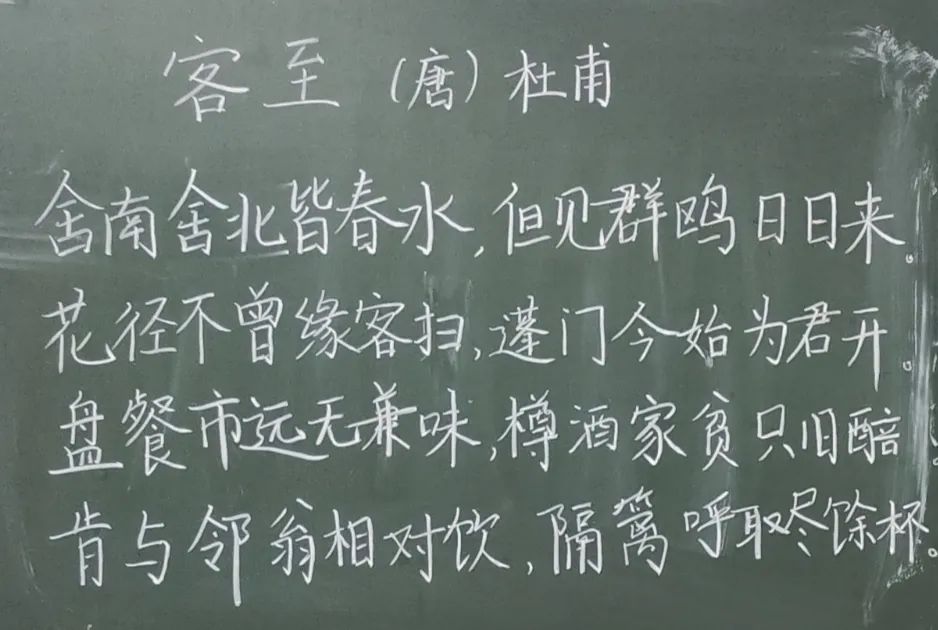 客至 (唐) 杜甫
舍南舍北皆春水,但见群鸥日日来。
花径不曾缘客扫,蓬门今始为君开。
盘餐市远无兼味,樽酒家贫只旧醅。
肯与邻翁相对饮,隔篱呼取尽馀杯。